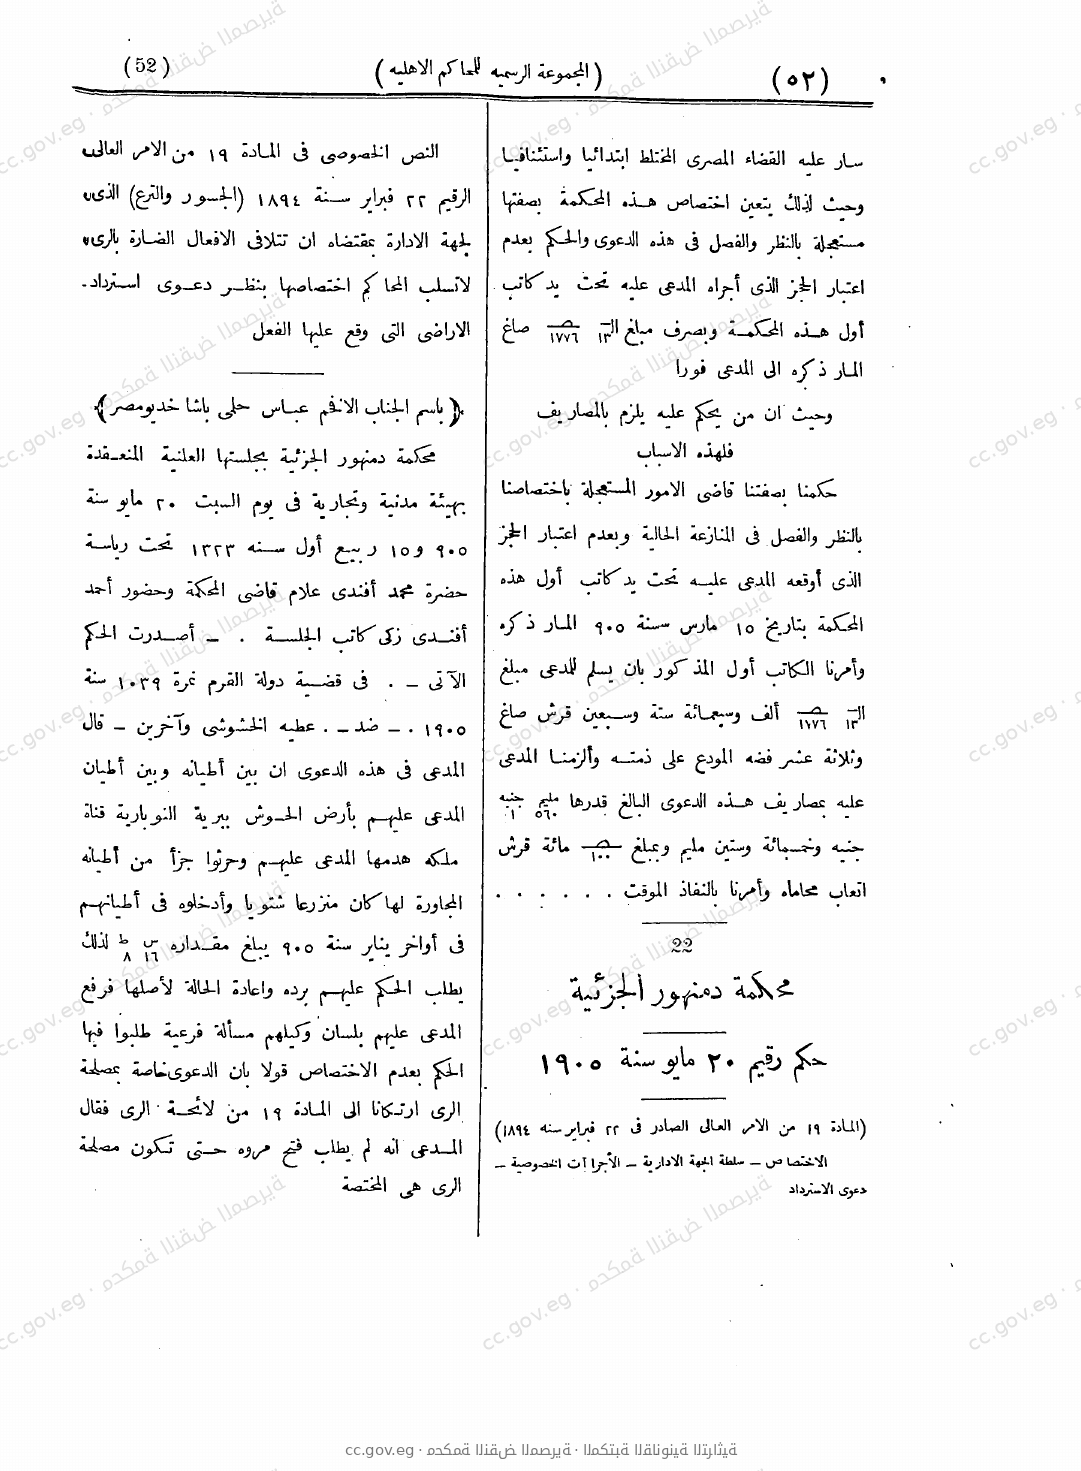 (52)
(المجموعة الرسميه للمحاكم الاهليه)
(٥٢)
سار عليه القضاء المصرى المختلط ابتدائيا واستئنافيا
وحيث لذلك يتعين اختصاص هذه المحكمة بصفتها
مستعجلة بالنظر والفصل فى هذه الدعوى والحكم بعدم
اعتبار الحجز الذى أجراه المدعى عليه تحت يد كاتب
أول هذه المحكمة وبصرف مبلغ الـ ١٣ ١٧٧٦ صاغ
المار ذكره الى المدعى فورا
وحيث ان من يحكم عليه يلزم بالمصاريف
فلهذه الاسباب
حكمنا بصفتنا قاضى الامور المستعجلة باختصاصنا
بالنظر والفصل فى المنازعة الحالية وبعدم اعتبار الحجز
الذى أوقعه المدعى عليه تحت يد كاتب أول هذه
المحكمة بتاريخ ١٥ مارس سنة ٩٠٥ المار ذكره
وأمرنا الكاتب أول المذكور بان يسلم للمدعى مبلغ
الـ ١٣ ١٧٧٦ ألف وسبعمائة ستة وسبعين قرش صاغ
وثلاثة عشر فضه المودع على ذمته وألزمنا المدعى
عليه بمصاريف هذه الدعوى البالغ قدرها مليم ٥٦٠ جنيه ١
جنيه وخمسمائة وستين مليم وبمبلغ ١٠٠ مائة قرش
اتعاب محاماه وأمرنا بالنفاذ الموقت . . . . . .
22
محكمة دمنهور الجزئية
حكم رقيم ٢٠ مايو سنة ١٩٠٥
(المادة ١٩ من الامر العالى الصادر فى ٢٢ فبراير سنه ١٨٩٤)
الاختصاص — سلطة الجهة الادارية — الأجراآت الخصوصية —
دعوى الاسترداد
النص الخصوصى فى المادة ١٩ من الامر العالى
الرقيم ٢٢ فبراير سنة ١٨٩٤ (الجسور والترع) الذى
لجهة الادارة بمقتضاه ان تتلافى الافعال الضارة بالرى
لاتسلب المحاكم اختصاصها بنظر دعوى استرداد
الاراضى التى وقع عليها الفعل
﴿باسم الجناب الافخم عباس حلمى باشا خديو مصر﴾
محكمة دمنهور الجزئية بجلستها العلنية المنعقدة
بهيئة مدنية وتجارية فى يوم السبت ٢٠ مايو سنة
٩٠٥ و١٥ ربيع أول سنه ١٣٢٣ تحت رياسة
حضرة محمد أفندى علام قاضى المحكمة وحضور أحمد
أفندى زكى كاتب الجلسة . — أصدرت الحكم
الآتى — . فى قضية دولة القرم نمرة ١٠٣٩ سنة
١٩٠٥ . — ضد — . عطيه الخشوشى وآخرين — قال
المدعى فى هذه الدعوى ان بين أطيانه وبين أطيان
المدعى عليهم بأرض الحوش ببرية النوبارية قناة
ملكه هدمها المدعى عليهم وحرثوا جزأ من أطيانه
المجاورة لها كان منزرعا شتويا وأدخلوه فى أطيانهم
فى أواخر يناير سنة ٩٠٥ يبلغ مقداره س ١٦ ط ٨ لذلك
يطلب الحكم عليهم برده واعادة الحالة لأصلها فرفع
المدعى عليهم بلسان وكيلهم مسألة فرعية طلبوا فيها
الحكم بعدم الاختصاص قولا بان الدعوى خاصة بمصلحة
الرى ارتكانا الى المادة ١٩ من لائحة الرى فقال
المدعى انه لم يطلب فتح مروه حتى تكون مصلحة
الرى هى المختصة
cc.gov.eg · محكمة النقض المصرية · المكتبة القانونية التراثية